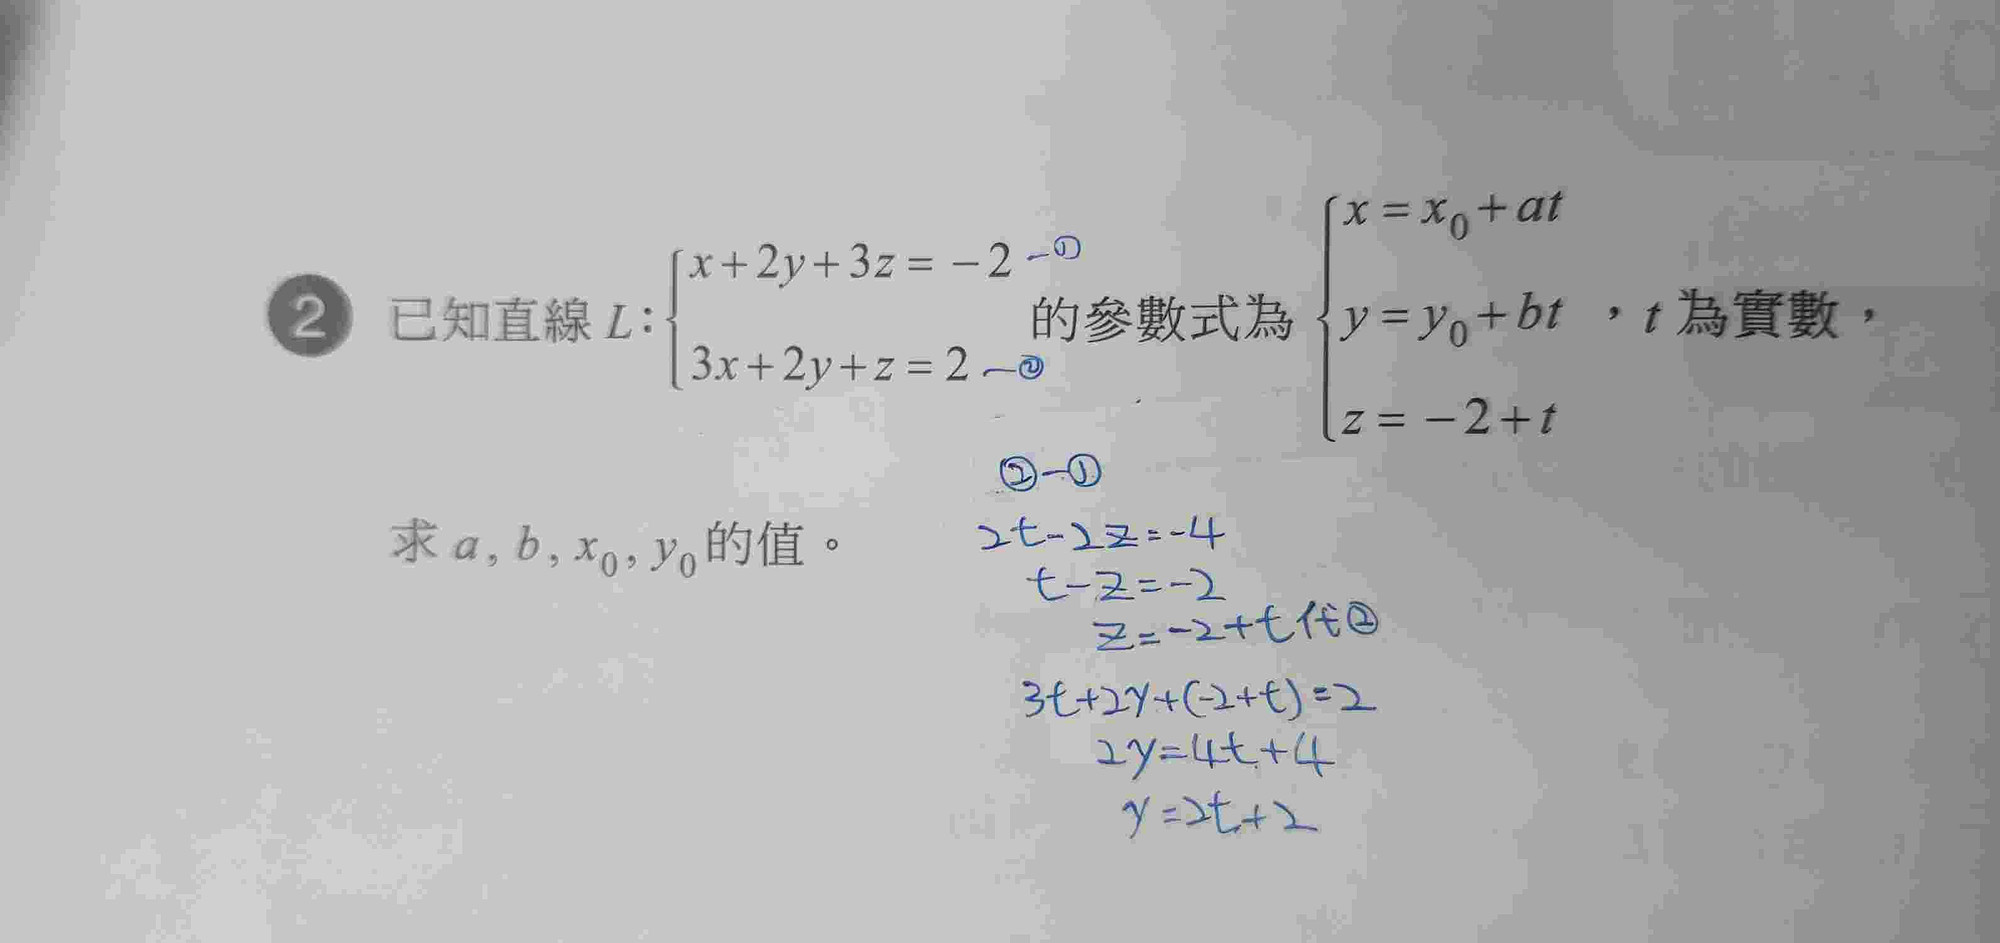 2 已知直線 L: { x+2y+3z = -2 -① 3x+2y+z = 2 -② 的參數式為 { x = x₀+at y = y₀+bt z = -2+t ,t 為實數,
求 a, b, x₀, y₀ 的值。
②-①
2t-2z=-4
t-z=-2
z=-2+t代②
3t+2y+(-2+t)=2
2y=4t+4
y=2t+2